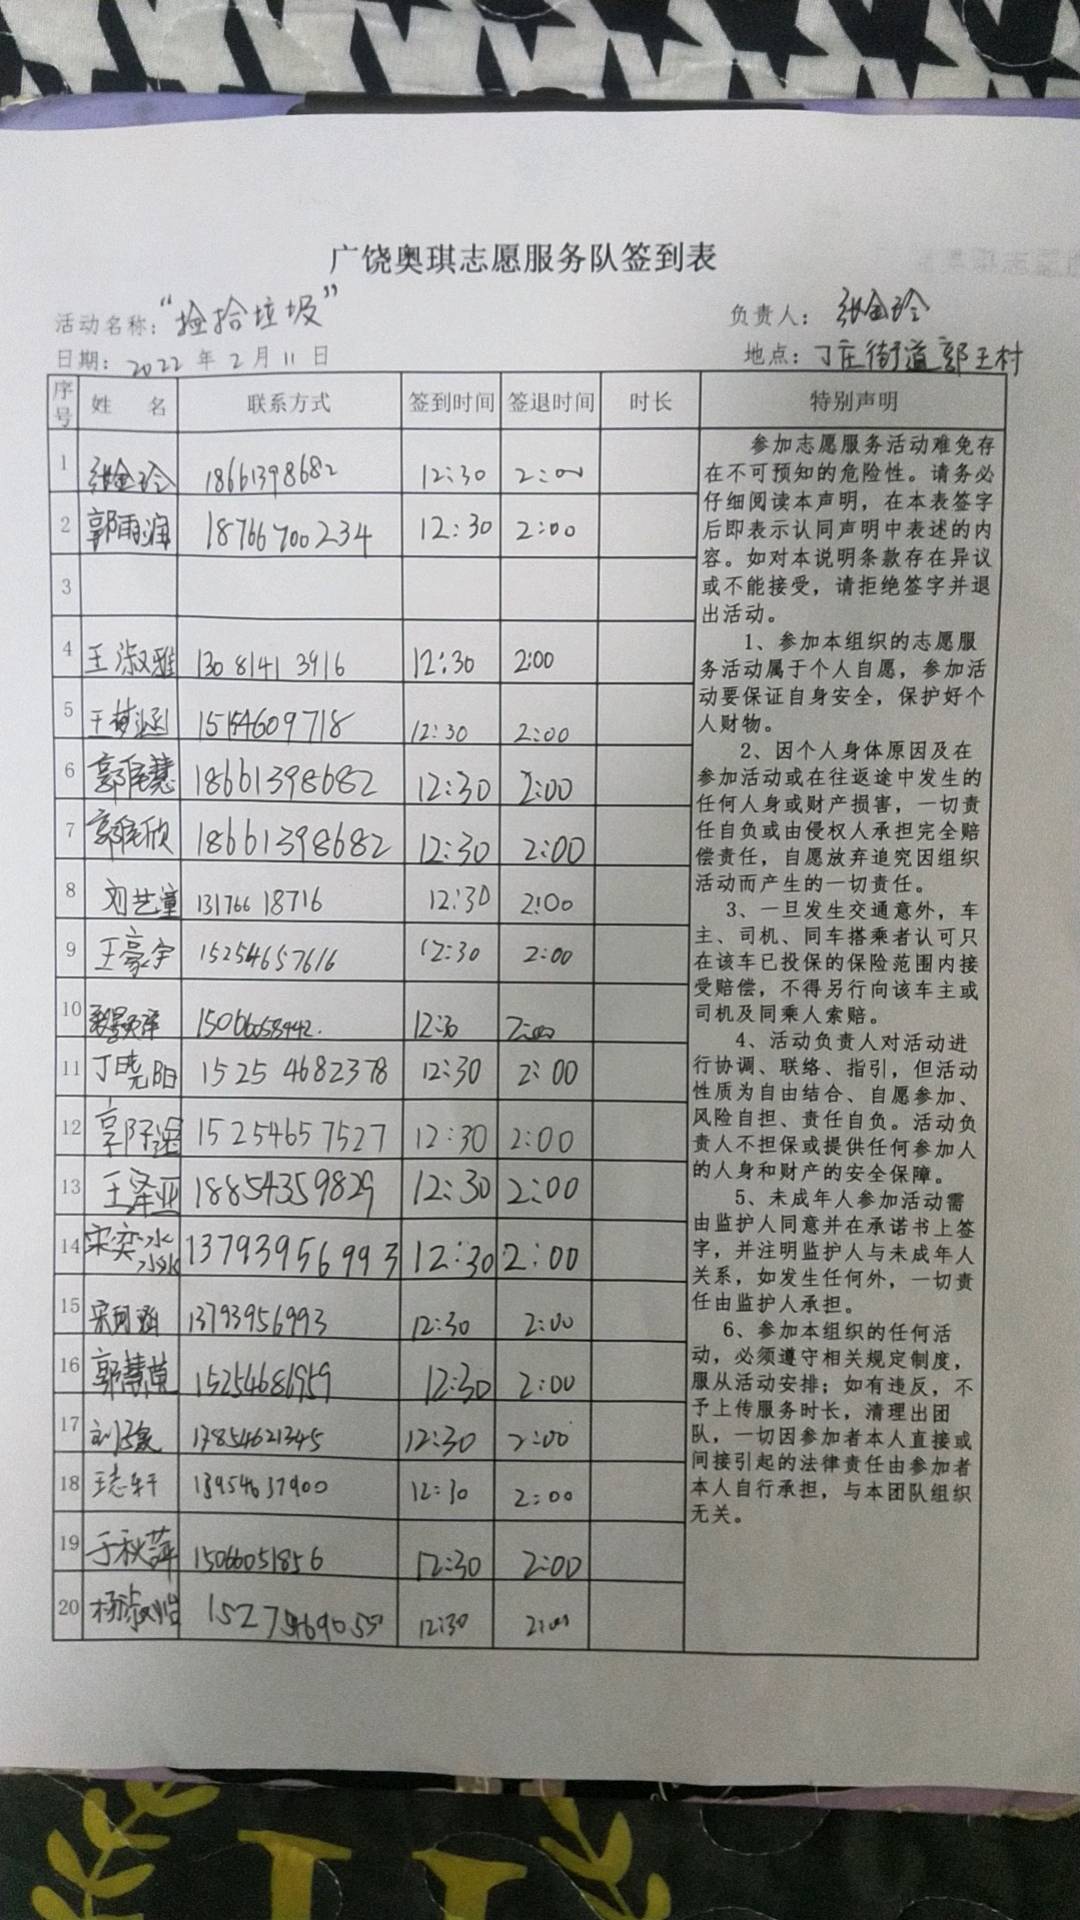 广饶奥琪志愿服务队签到表
活动名称：“捡拾垃圾” 负责人： 张金玲
日期：2022年2月11日 地点：丁庄街道郭王村
序号 姓 名 联系方式 签到时间 签退时间 时长 特别声明
1 张金玲 18661398682 12:30 2:00
2 郭雨润 18766700234 12:30 2:00
3
4 王淑雅 13081413916 12:30 2:00
5 王梦涵 15154609718 12:30 2:00
6 18661398682 12:30 2:00
7 18661398682 12:30 2:00
8 刘艺潼 13176618716 12:30 2:00
9 王豪宇 15254657616 12:30 2:00
10 12:30 2:00
11 丁晓阳 15254682378 12:30 2:00
12 15254657527 12:30 2:00
13 王泽亚 18854359829 12:30 2:00
14 宋奕冰 13793956993 12:30 2:00
15 13793956993 12:30 2:00
16 12:30 2:00
17 12:30 2:00
18 王志轩 13954637900 12:30 2:00
19 于秋萍 15066051856 12:30 2:00
20 杨淑怡 12:30 2:00
参加志愿服务活动难免存
在不可预知的危险性。请务必
仔细阅读本声明，在本表签字
后即表示认同声明中表述的内
容。如对本说明条款存在异议
或不能接受，请拒绝签字并退
出活动。
1、参加本组织的志愿服
务活动属于个人自愿，参加活
动要保证自身安全，保护好个
人财物。
2、因个人身体原因及在
参加活动或在往返途中发生的
任何人身或财产损害，一切责
任自负或由侵权人承担完全赔
偿责任，自愿放弃追究因组织
活动而产生的一切责任。
3、一旦发生交通意外，车
主、司机、同车搭乘者认可只
在该车已投保的保险范围内接
受赔偿，不得另行向该车主或
司机及同乘人索赔。
4、活动负责人对活动进
行协调、联络、指引，但活动
性质为自由结合、自愿参加、
风险自担、责任自负。活动负
责人不担保或提供任何参加人
的人身和财产的安全保障。
5、未成年人参加活动需
由监护人同意并在承诺书上签
字，并注明监护人与未成年人
关系，如发生任何外，一切责
任由监护人承担。
6、参加本组织的任何活
动，必须遵守相关规定制度，
服从活动安排；如有违反，不
予上传服务时长，清理出团
队，一切因参加者本人直接或
间接引起的法律责任由参加者
本人自行承担，与本团队组织
无关。